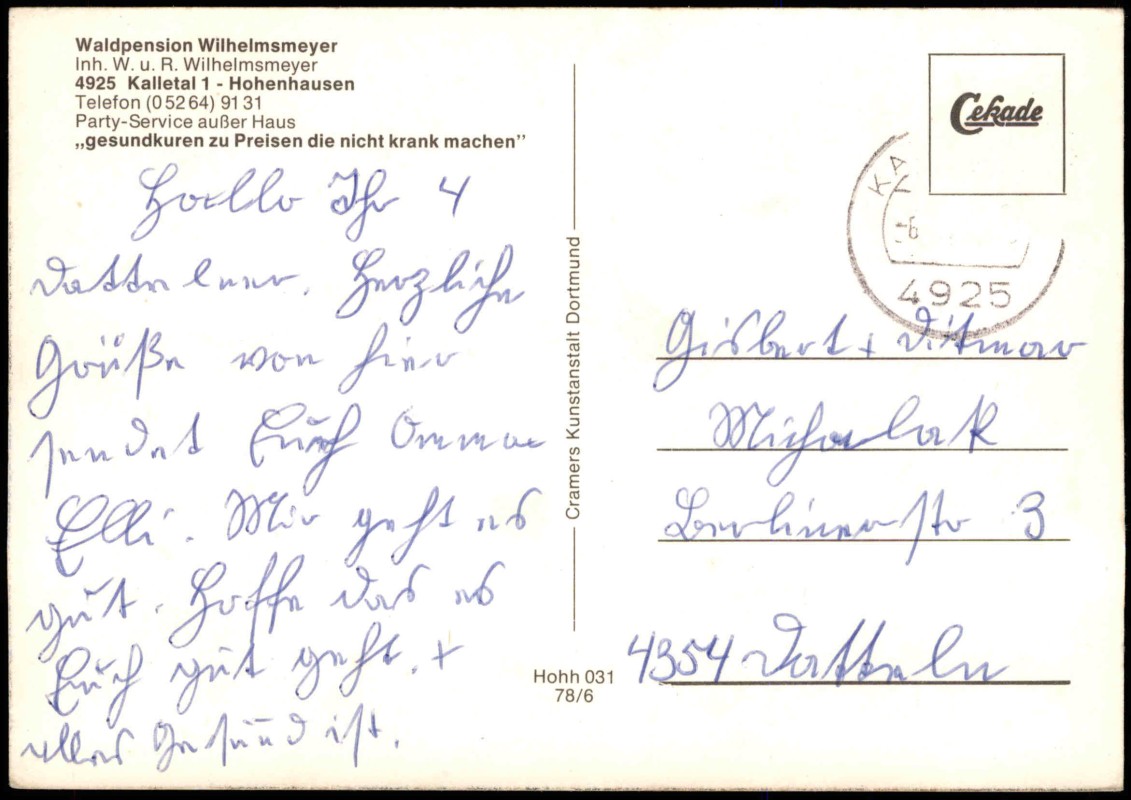 Waldpension Wilhelmsmeyer
Inh. W. u. R. Wilhelmsmeyer
4925 Kalletal 1 - Hohenhausen
Telefon (05264) 9131
Party-Service außer Haus
„gesundkuren zu Preisen die nicht krank machen”
Hallo Ihr 4
Dattelner. Herzliche
Grüße von hier
sendet Euch Omma
Elli. Mir geht es
gut. Hoffe das es
Euch gut geht. +
alles Gesund ist.
Cramers Kunstanstalt Dortmund
Hohh 031
78/6
Cekade
KA
-6
4925
Gisbert + Ditmar
Michalak
Berlinerstr 3
4354 Datteln